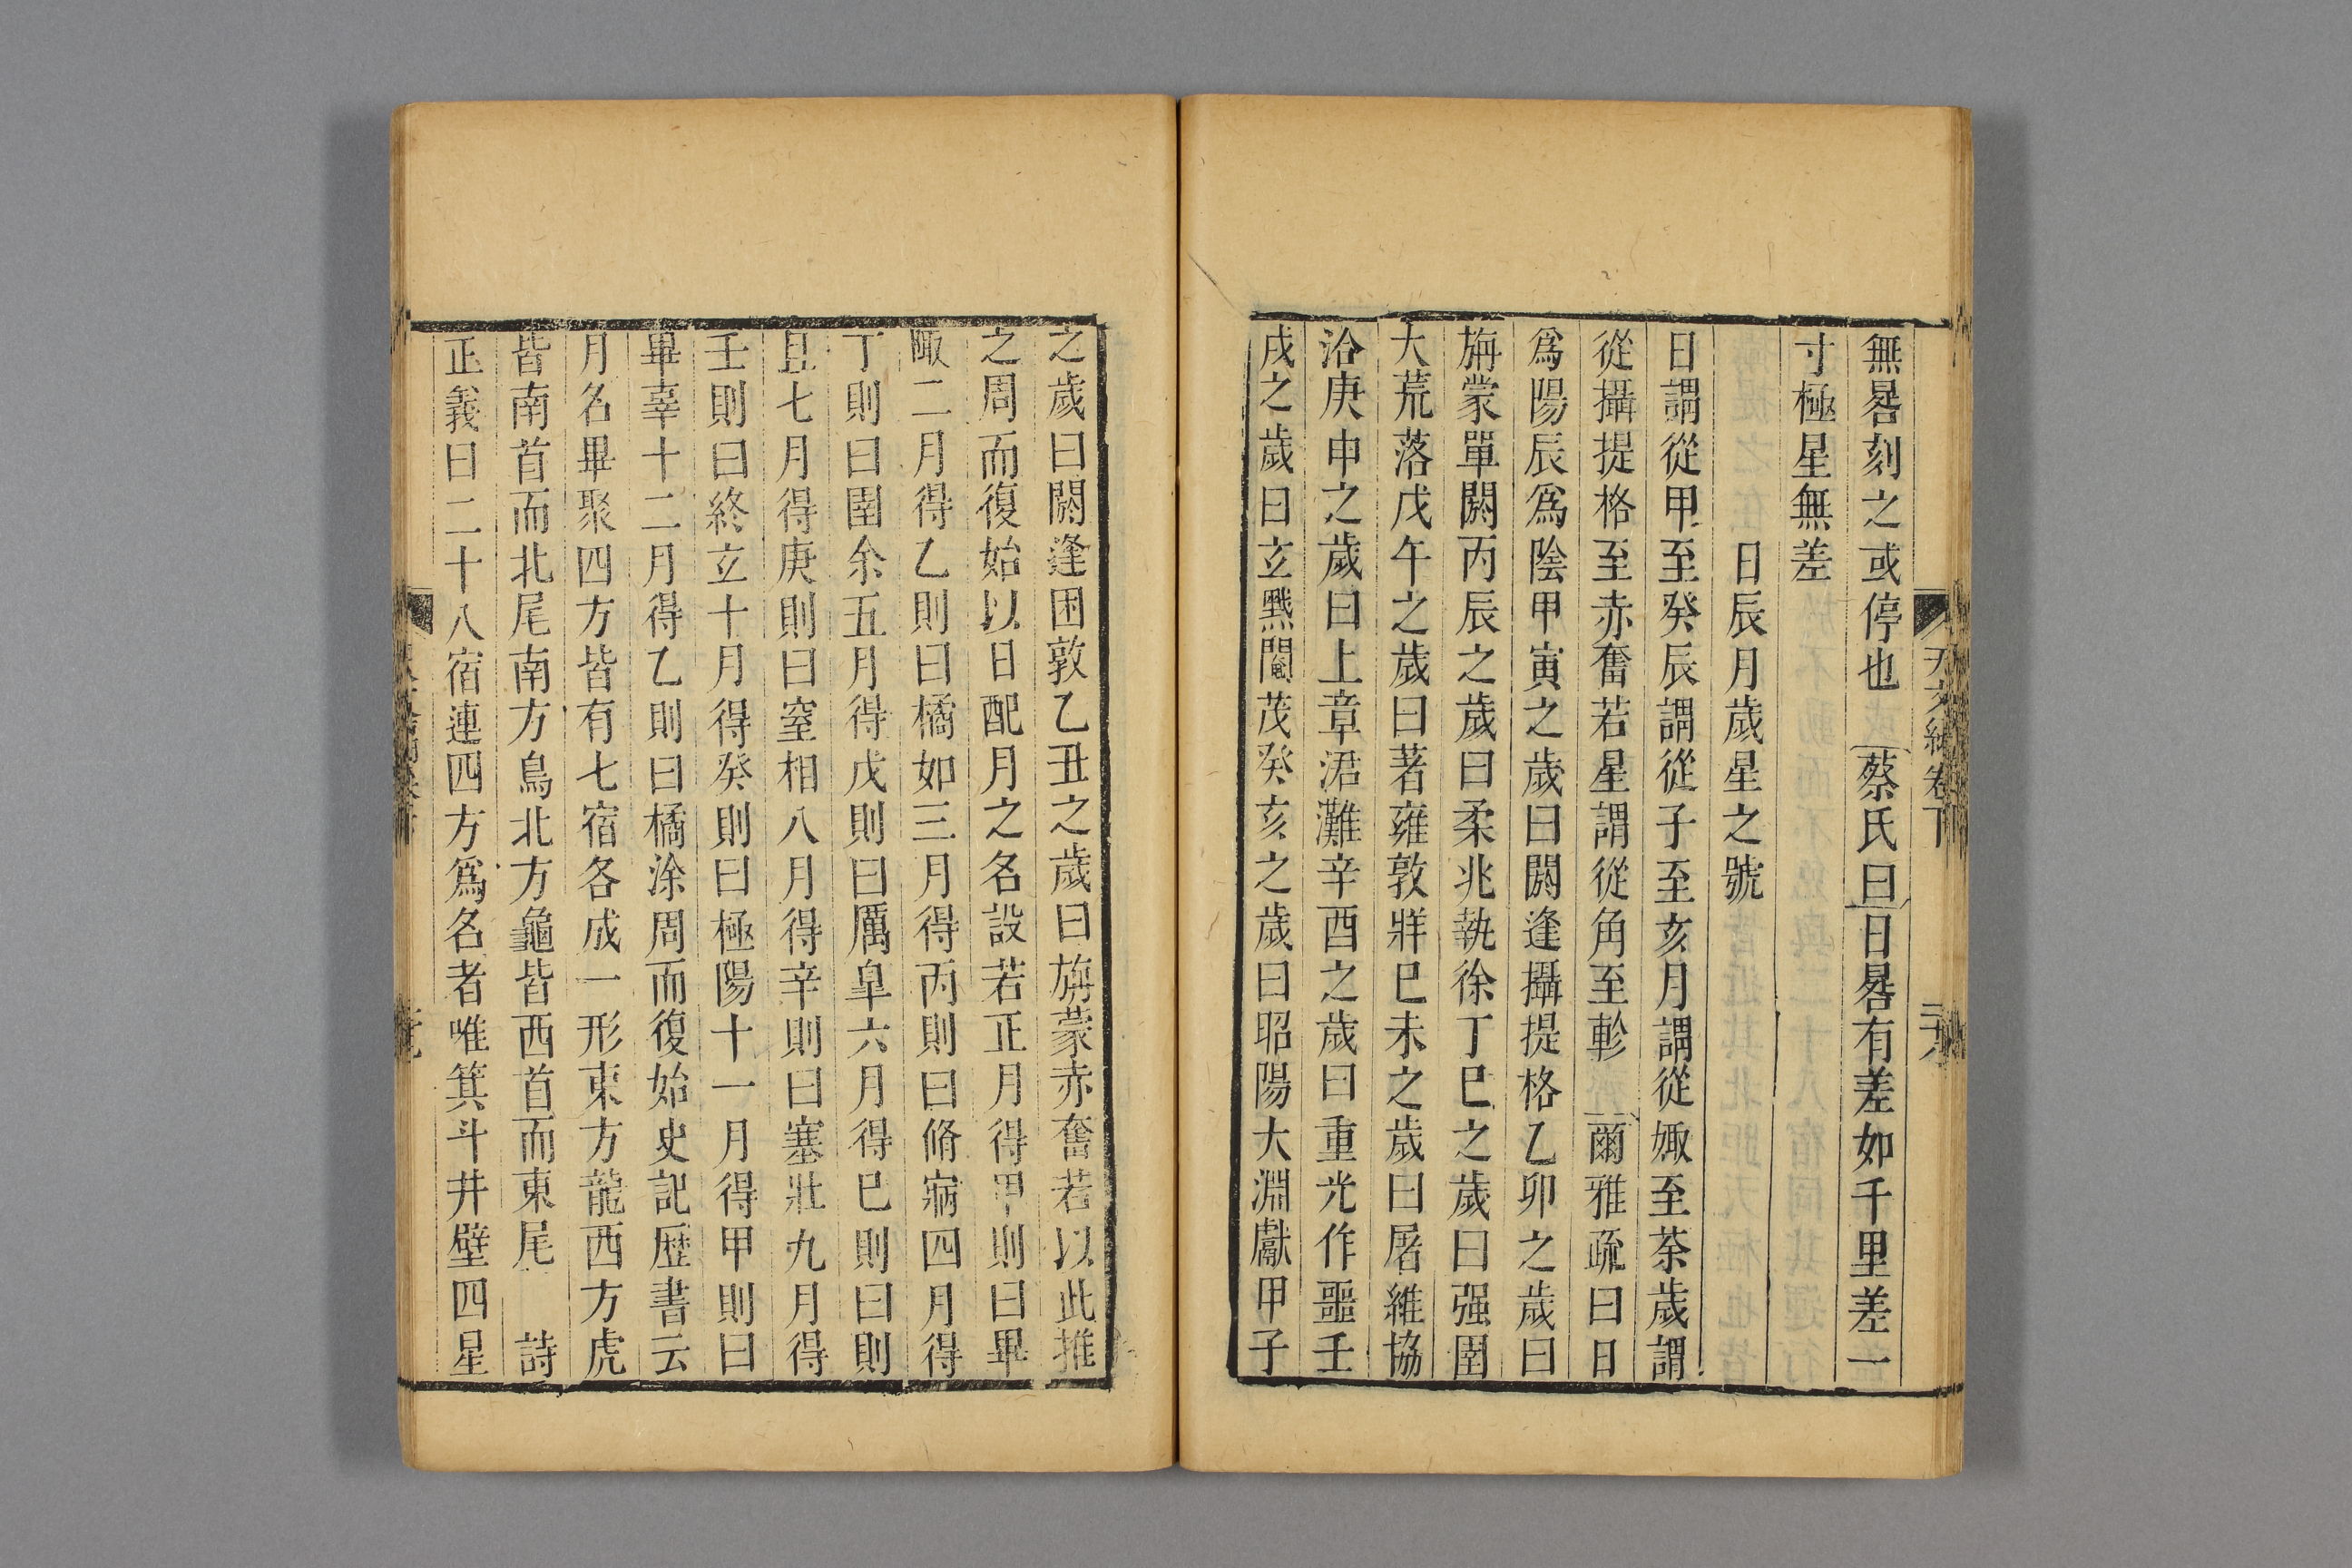 無晷刻之或停也蔡氏曰日晷有差如千里差一
寸極星無差
日辰月歲星之號
日謂從甲至癸辰謂從子至亥月謂從娵至荼歲謂
從攝提格至赤奮若星謂從角至軫爾雅疏曰日
爲陽辰爲陰甲寅之歲曰閼逢攝提格乙卯之歲曰
旃蒙單閼丙辰之歲曰柔兆執徐丁巳之歲曰强圉
大荒落戊午之歲曰著雍敦牂巳未之歲曰屠維協
洽庚申之歲曰上章涒灘辛酉之歲曰重光作噩壬
戌之歲曰玄黓閹茂癸亥之歲曰昭陽大淵獻甲子
之歲曰閼逢困敦乙丑之歲曰旃蒙赤奮若以此推
之周而復始以日配月之名設若正月得甲則曰畢
陬二月得乙則曰橘如三月得丙則曰脩寎四月得
丁則曰圉余五月得戊則曰厲皐六月得巳則曰則
且七月得庚則曰窒相八月得辛則曰塞壯九月得
壬則曰終玄十月得癸則曰極陽十一月得甲則曰
畢辜十二月得乙則曰橘涂周而復始史記歷書云
月名畢聚四方皆有七宿各成一形東方龍西方虎
皆南首而北尾南方鳥北方龜皆西首而東尾 詩
正義曰二十八宿連四方爲名者唯箕斗井壁四星